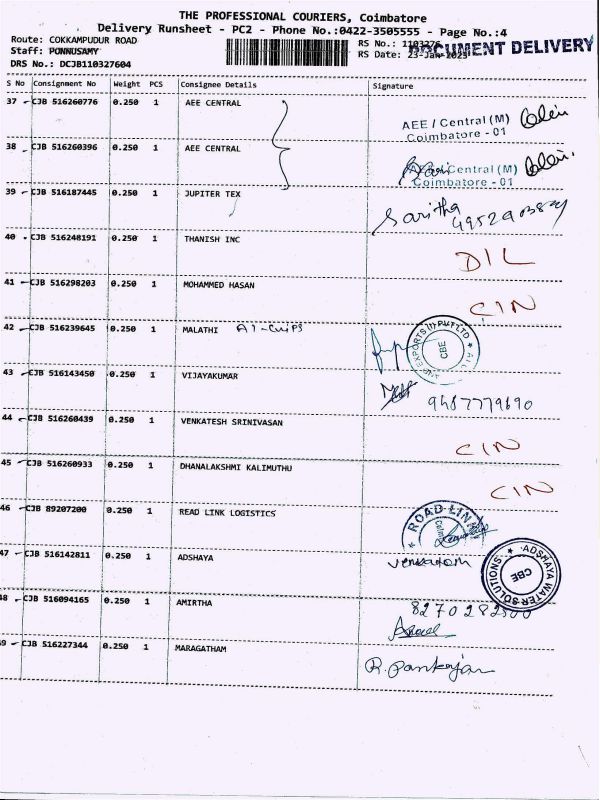 THE PROFESSIONAL COURIERS, Coimbatore
Delivery Runsheet - PC2 - Phone No.:0422-3505555 - Page No.:4
Route: COKKAMPUDUR ROAD
RS No.: 1103276
DOCUMENT DELIVERY
Staff: PONNUSAMY
RS Date: 23-Jan-2023
DRS No.: DCJB110327604
S No Consignment No Weight PCS Consignee Details Signature
37 CJB 516260776 0.250 1 AEE CENTRAL
AEE / Central (M)
Coimbatore - 01
38 CJB 516260396 0.250 1 AEE CENTRAL
AEE / Central (M)
Coimbatore - 01
39 CJB 516187445 0.250 1 JUPITER TEX
Saritha
40 CJB 516248191 0.250 1 THANISH INC
DIL
41 CJB 516298203 0.250 1 MOHAMMED HASAN
CIN
42 CJB 516239645 0.250 1 MALATHI A1-Chips
EXPORTS (I) PVT LTD
CBE
43 CJB 516143450 0.250 1 VIJAYAKUMAR
9487779690
44 CJB 516260439 0.250 1 VENKATESH SRINIVASAN
CIN
45 CJB 516260933 0.250 1 DHANALAKSHMI KALIMUTHU
CIN
46 CJB 89207200 0.250 1 READ LINK LOGISTICS
ROAD LINK
47 CJB 516142811 0.250 1 ADSHAYA
ADSHAYA WATER SOLUTIONS
CBE
48 CJB 516094165 0.250 1 AMIRTHA
49 CJB 516227344 0.250 1 MARAGATHAM
R. Pankajam